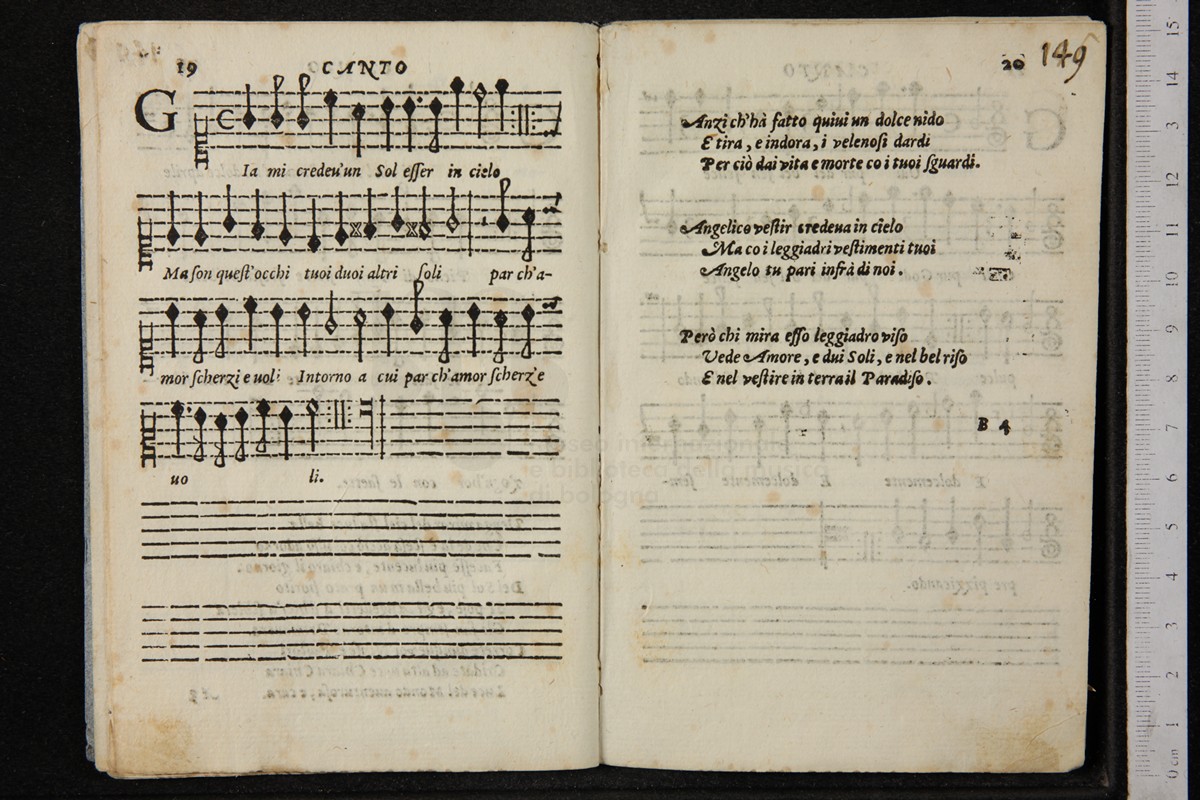 19 CANTO
G
Ia mi credeu'un Sol esser in cielo
Ma son quest'occhi tuoi duoi altri soli par ch'a-
mor scherzi e uoli Intorno a cui par ch'amor scherz'e
uo li.
20 149
Anzi ch'hà fatto quiui un dolce nido
E tira, e indora, i velenosi dardi
Per ciò dai vita e morte co i tuoi sguardi.
Angelico vestir credeua in cielo
Ma co i leggiadri vestimenti tuoi
Angelo tu pari infrà di noi.
Però chi mira esso leggiadro viso
Vede Amore, e dui Soli, e nel bel riso
E nel vestire in terra il Paradiso.
B 4
museo internazionale
e biblioteca della musica
di bologna
15
14
13
12
11
10
9
8
7
6
5
4
3
2
1
0 cm